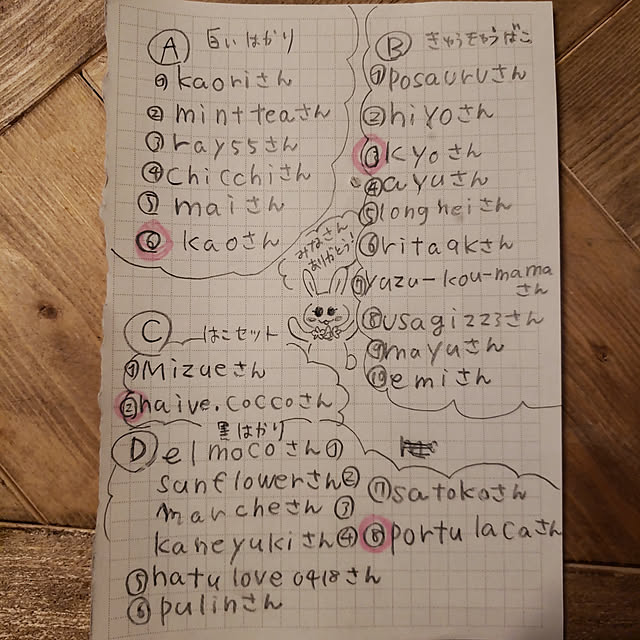 A 白いはかり
① kaoriさん
② mintteaさん
③ ray55さん
④ chicchiさん
⑤ maiさん
⑥ kaoさん
B きゅうきゅうばこ
① posauruさん
② hiyoさん
③ kyoさん
④ ayuさん
⑤ longheiさん
⑥ ritaakさん
⑦ yuzu-kou-mama
さん
⑧ usagi223さん
⑨ mayuさん
⑩ emiさん
みなさん
ありがとう!
C はこセット
① Mizueさん
② naive.coccoさん
D 黒はかり
elmocoさん①
sunflowerさん②
marcheさん③
kaneyukiさん④
⑤ hatulove0418さん
⑥ pulinさん
⑦ satokoさん
⑧ portulacaさん